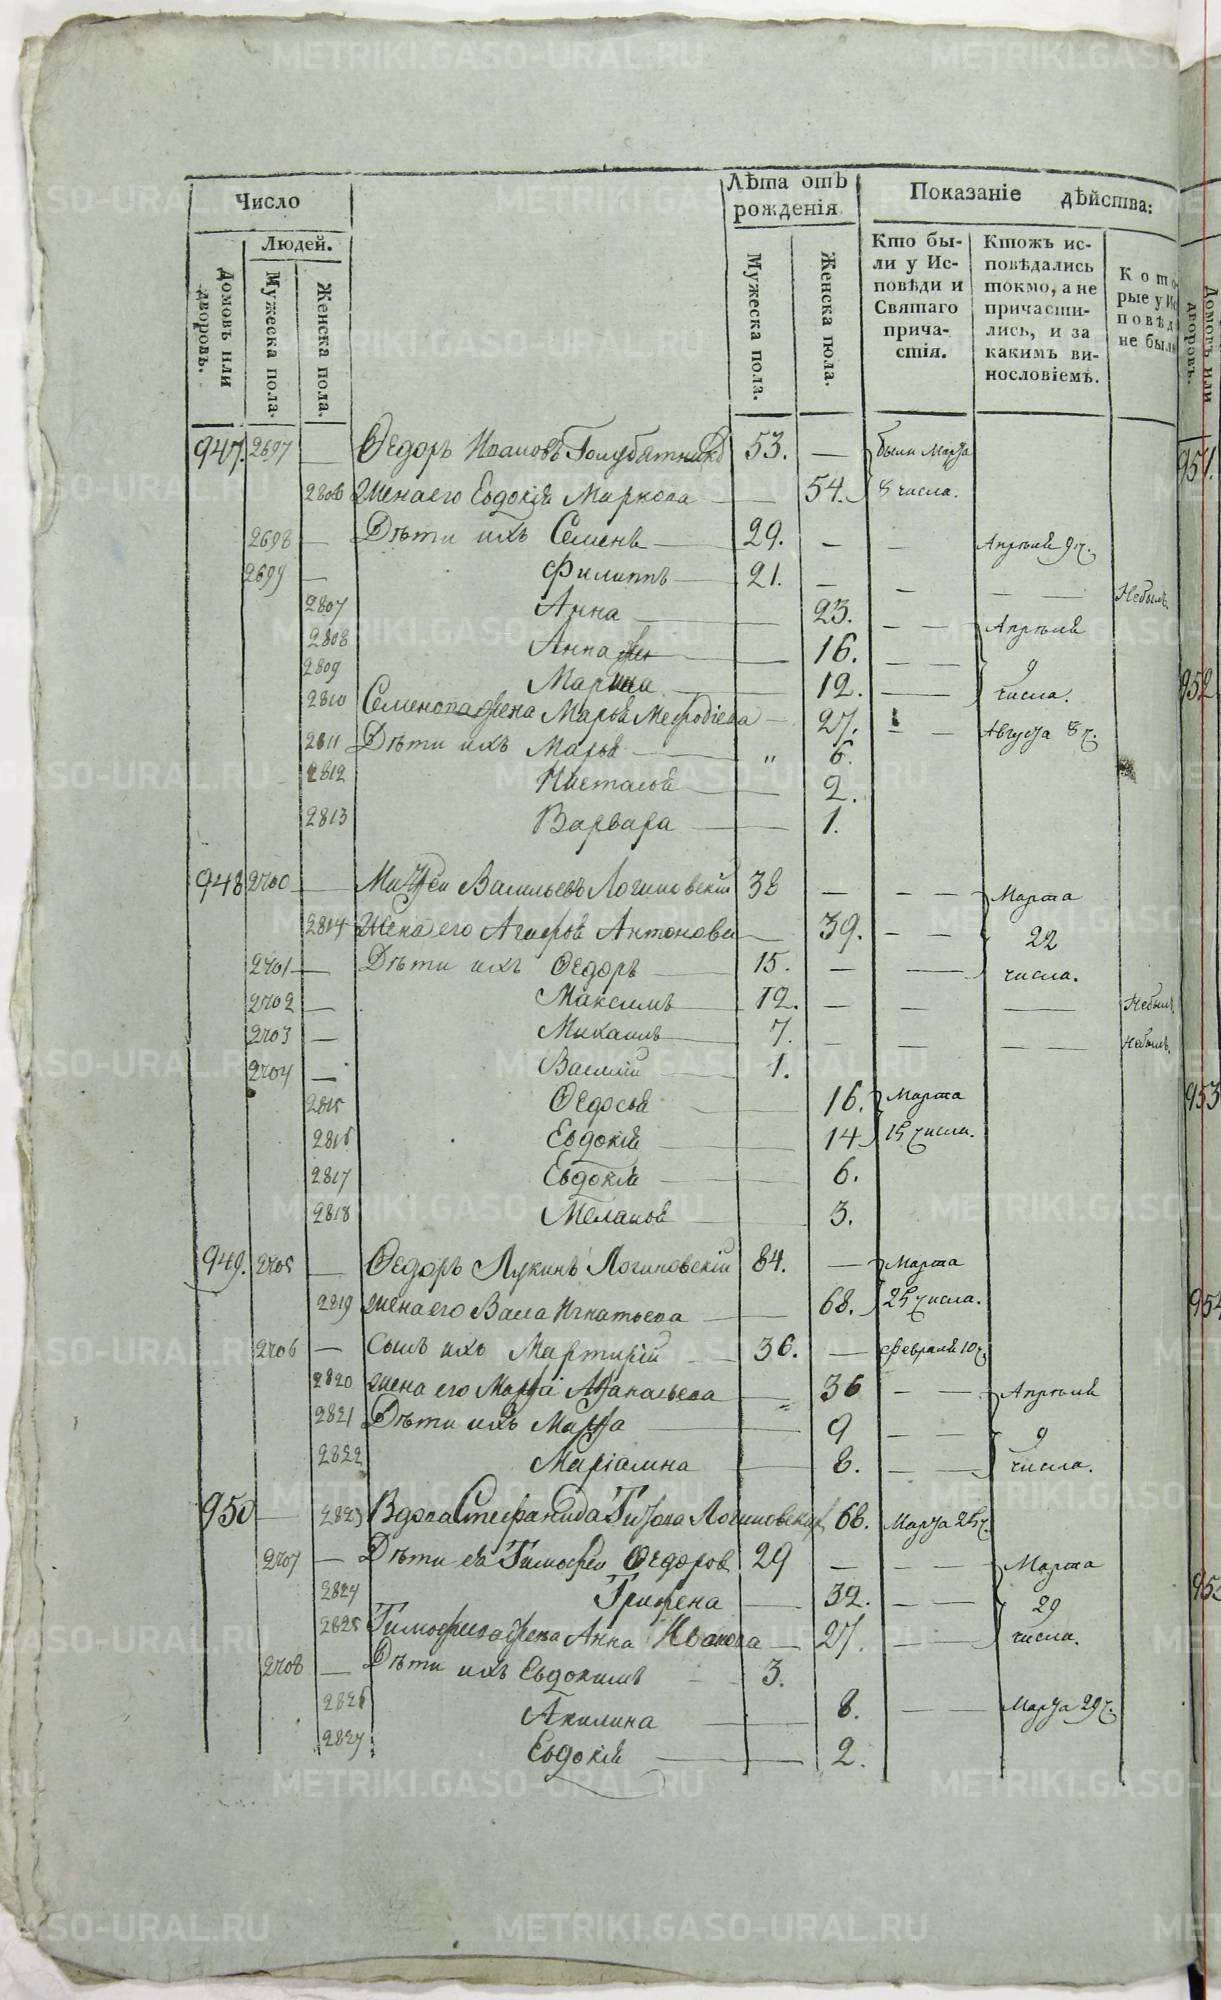 Число
Людей.
Домовъ или дворовъ.
Мужеска пола.
Женска пола.
Лѣта отъ рожденія
Мужеска пола.
Женска пола.
Показаніе дѣйства:
Кто бы-
ли у Ис-
повѣди и
Святаго
прича-
стія.
Ктожъ ис-
повѣдались
токмо, а не
причасти-
лись, и за
какимъ ви-
нословіемъ.
Кото-
рые у Ис
повѣд
не были
947. 2697 — Ѳедоръ Ивановъ Голубятников 53. — были Марта
2806 Жена его Евдокія Маркова — 54. 8 числа.
2698 — Дѣти ихъ Семенъ — 29. — — Апрѣля 9 ч.
2699 — Филиппъ — 21. — — — — Небылъ
2807 Анна — — 23. — — Апрѣля
2808 Анна — — 16. — — 9
2809 Марина — — 12. — числа.
2810 Семенова жена Марья Мефодіева — 27. — — Августа 8 ч.
2811 Дѣти ихъ Марья — „ 6.
2812 Настасья — — 2.
2813 Варвара — — 1.
948 2700 — Васильевъ Логиновскій 38 — — — Марта
2814 Жена его Антонова — 39. — — 22
2701 — Дѣти ихъ Ѳедоръ — 15. — — числа.
2702 — Максимъ 12. — — — Небылъ
2703 — Михаилъ 7. — — — — Небылъ.
2704 — Василій — 1.
2815 Ѳедосья — — 16. Марта
2816 Евдокія — — 14 15 числа.
2817 Евдокія — — 6.
2818 Меланья — — 3.
949. 2705 — Ѳедоръ Лукинъ Логиновскій 84. — Марта
2819 жена его Васса Игнатьева — — 68. 25 числа.
2706 — сынъ ихъ Мартирій — 36. — Февраля 10 ч.
2820 жена его Марфа Афанасьева — 36 — — Апрѣля
2821 Дѣти ихъ Марфа — 9 — — 9
2822 Маріамна — 8. — — числа.
950 — 2823 Вдова Стефанида Логиновская 68. Марта 25 ч.
2707 — Дѣти ея Тимофей Ѳедоров 29 — — — Марта
2824 Трифена — 32. — — 29
2825 Тимофеева жена Анна Иванова — 27. — — числа.
2708 — Дѣти ихъ Евдокимъ — 3.
2826 Акилина — 8. — — Марта 29 ч.
2827 Евдокія — 2.
951.
952
953
954
METRIKI.GASO-URAL.RU